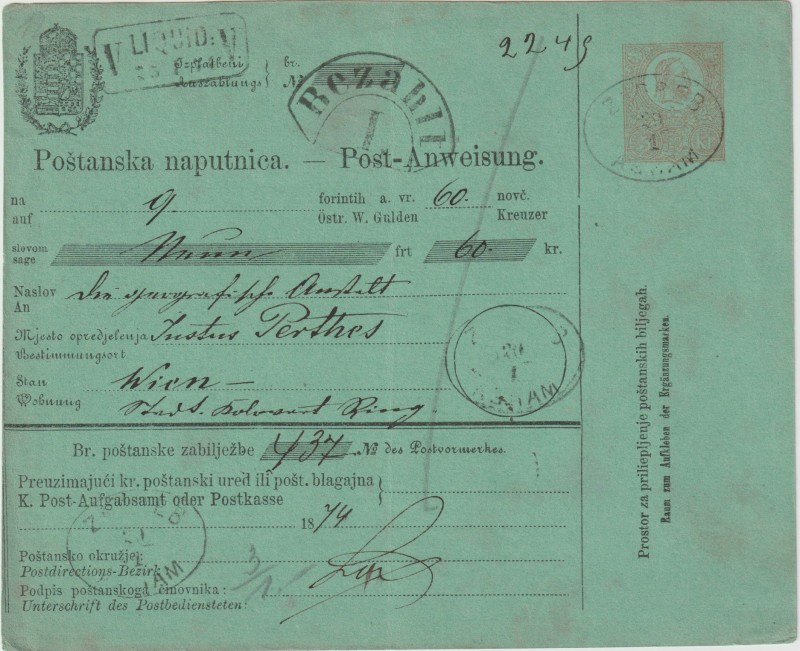 LIQUID:
Bezahlt
I
2249
ZAGREB
AGRAM
Izplatbeni br.
Auszahlungs № 
Poštanska naputnica. — Post-Anweisung.
na 9 forintih a. vr. 60. novč.
auf Östr. W. Gulden Kreuzer
slovom Neun frt 60. kr.
sage
Naslov die geografische Anstalt
An
Mjesto opredjelenja Justus Perthes
Bestimmungsort
Stan Wien —
Wobnung Stadt. Kolowrat Ring
Z B
AGRAM
Br. poštanske zabilježbe 437 № des Postvormerkes.
Preuzimajući kr. poštanski ured ili pošt. blagajna
K. Post-Aufgabsamt oder Postkasse
1874
Poštansko okružje:
Postdirections-Bezirk
Podpis poštanskoga činovnika:
Unterschrift des Postbediensteten:
3/1
Prostor za priliepljenje poštanskih biljegah.
Raum zum Aufkleben der Ergänzungsmarken.